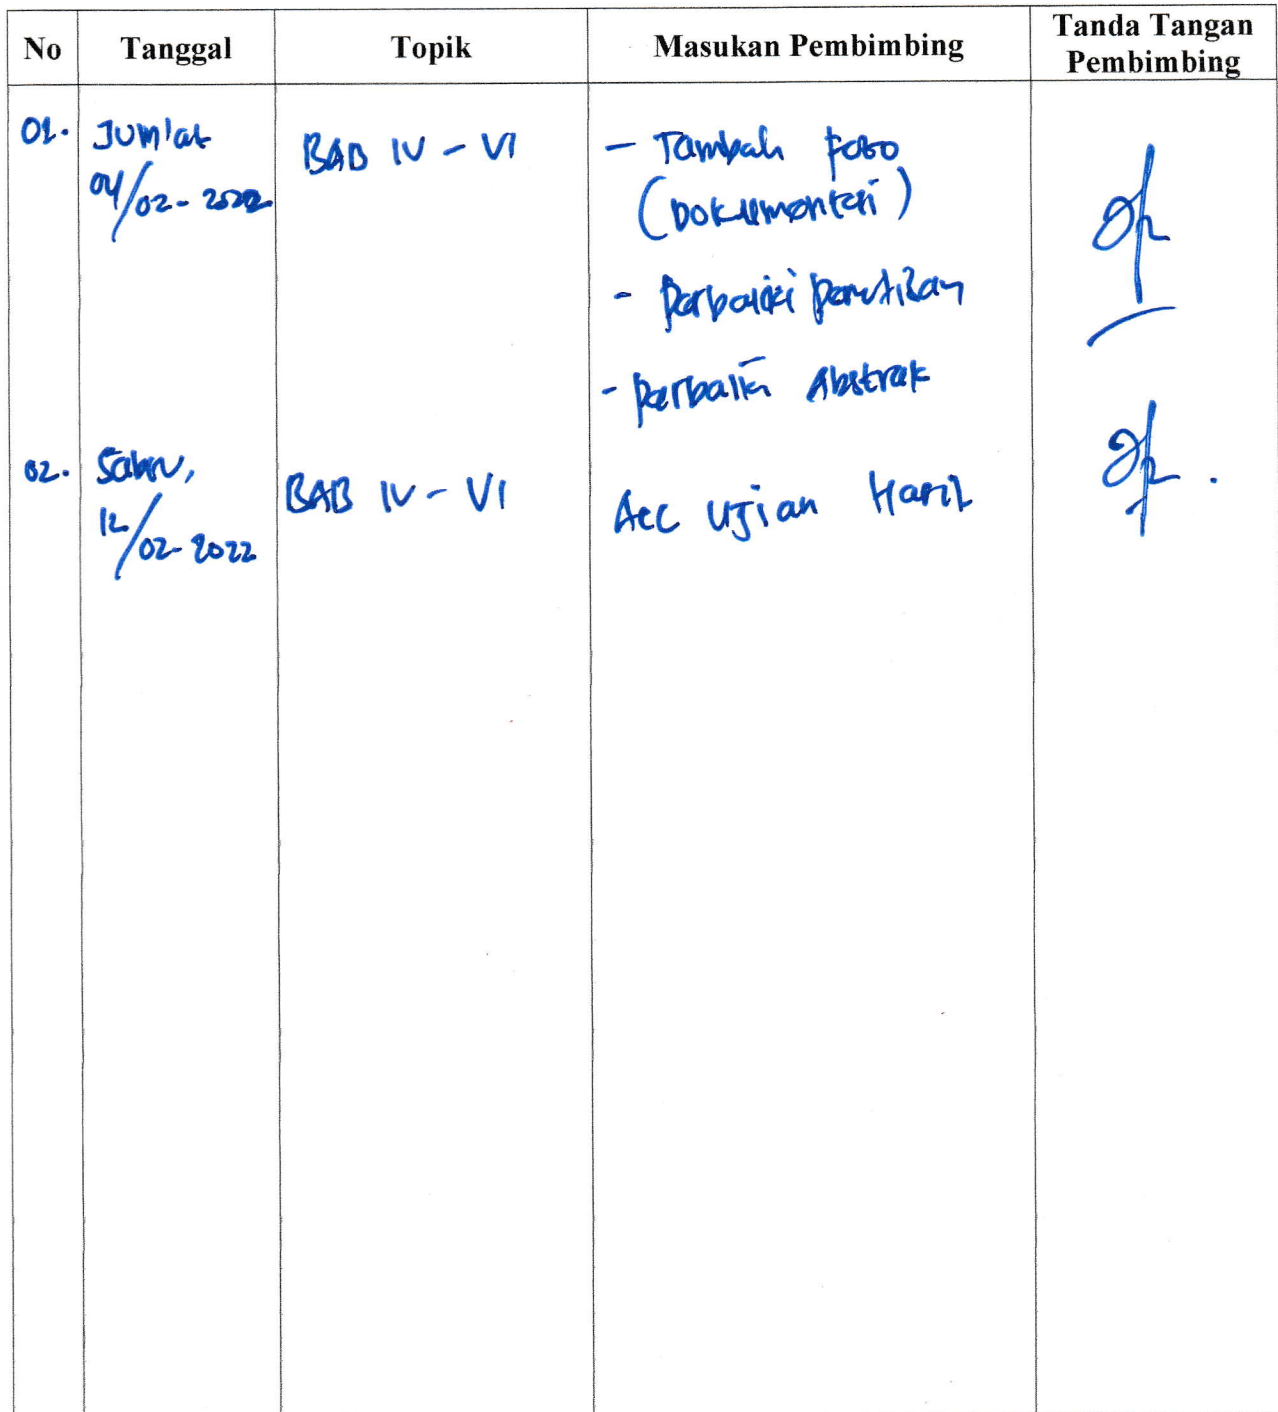 No Tanggal Topik Masukan Pembimbing Tanda Tangan Pembimbing
01. Jum'at BAB IV - VI - Tambah Foto
04/02-2022 (Dokumentasi)
- Perbaiki penulisan
- Perbaiki Abstrak
02. Sabtu, BAB IV - VI Acc Ujian Hasil
12/02-2022